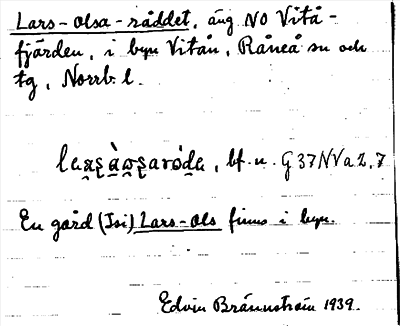 Lars-Olsa-råddet, äng NO Vitå-
fjärden, i byn Vitån, Råneå sn och
tg, Norrb. l.
bf. n. G 37 NV a 2, 7
En gård (Isi) Lars-Ols finns i byn.
Edvin Brännström 1939.